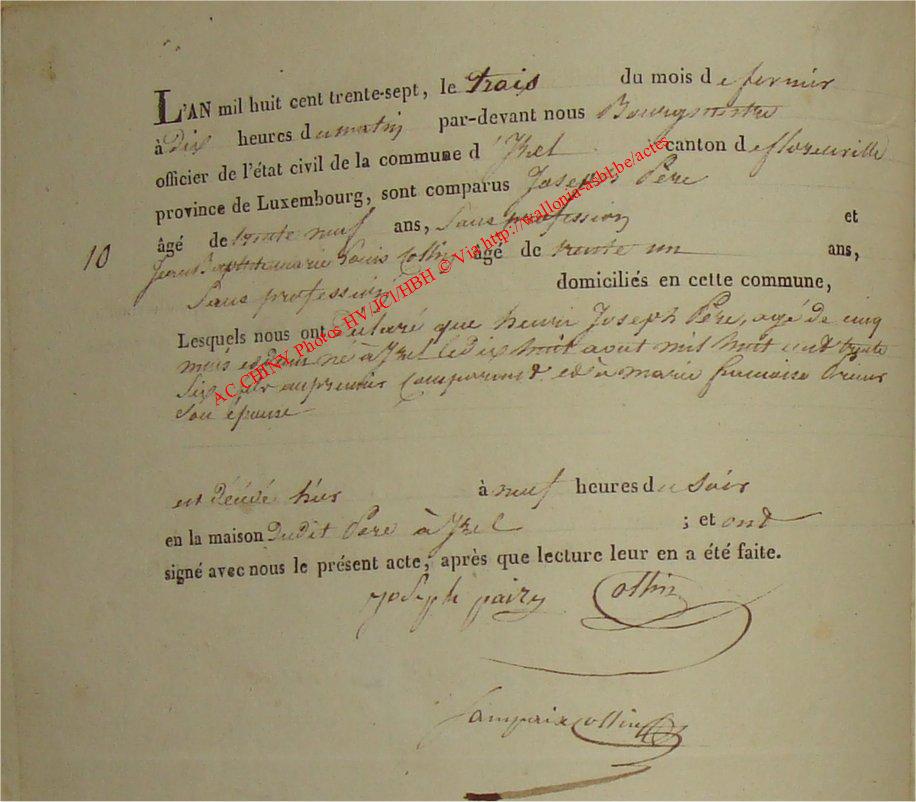 L'AN mil huit cent trente-sept, le trois du mois de fevrier
à Dix heures du matin par-devant nous Bourgmestre
officier de l'état civil de la commune d'Izel canton de florenville
province de Luxembourg, sont comparus Joseph Pere
âgé de trente neuf ans, Sans profession et
10 Jean Baptiste marie Louis Collin âgé de trente un ans,
Sans profession domiciliés en cette commune,
Lesquels nous ont Déclaré que henri Joseph Pere, agé de cinq
mois et demi né à Izel le dix huit aout mil huit cent trente
Six, fils au premier Comparant et à marie francoise
Son épouse
est décédé hier à neuf heures du Soir
en la maison Dudit Pere à Izel ; et ont
signé avec nous le présent acte, après que lecture leur en a été faite.
joseph Collin
collin
AC CHINY Photos HV/JCl/HBH © Via http://wallonia-asbl.be/actes